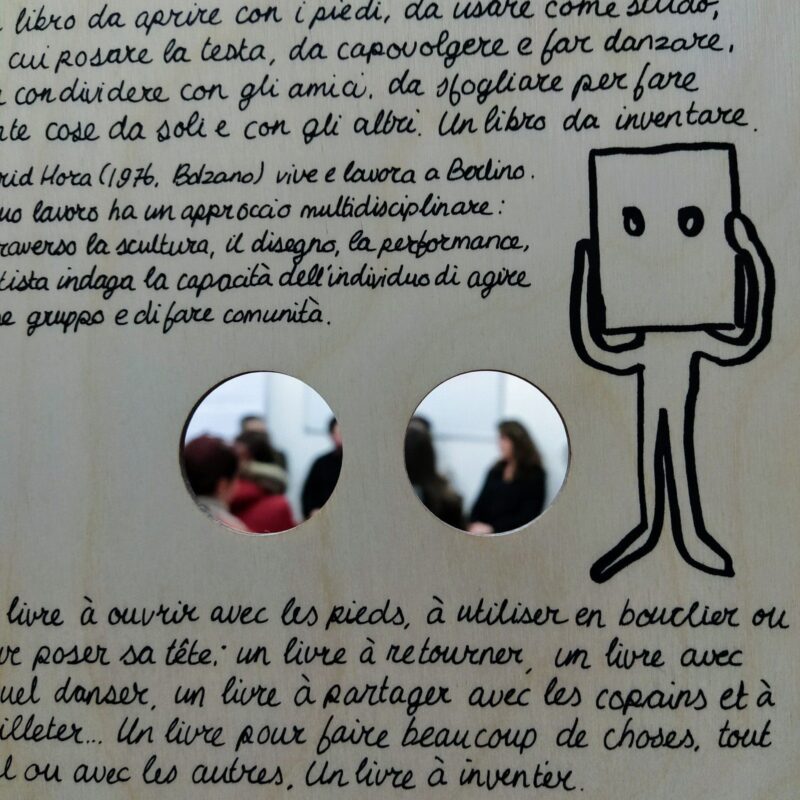 libro da aprire con i piedi, da usare come scudo,
cui posare la testa, da capovolgere e far danzare,
condividere con gli amici, da sfogliare per fare
te cose da soli e con gli altri. Un libro da inventare.
rid Hora (1976, Bolzano) vive e lavora a Berlino.
uo lavoro ha un approccio multidisciplinare:
raverso la scultura, il disegno, la performance,
tista indaga la capacità dell'individuo di agire
e gruppo e di fare comunità.
livre à ouvrir avec les pieds, à utiliser en bouclier ou
ur poser sa tête; un livre à retourner, un livre avec
uel danser, un livre à partager avec les copains et à
illeter... Un livre pour faire beaucoup de choses, tout
l ou avec les autres. Un livre à inventer.